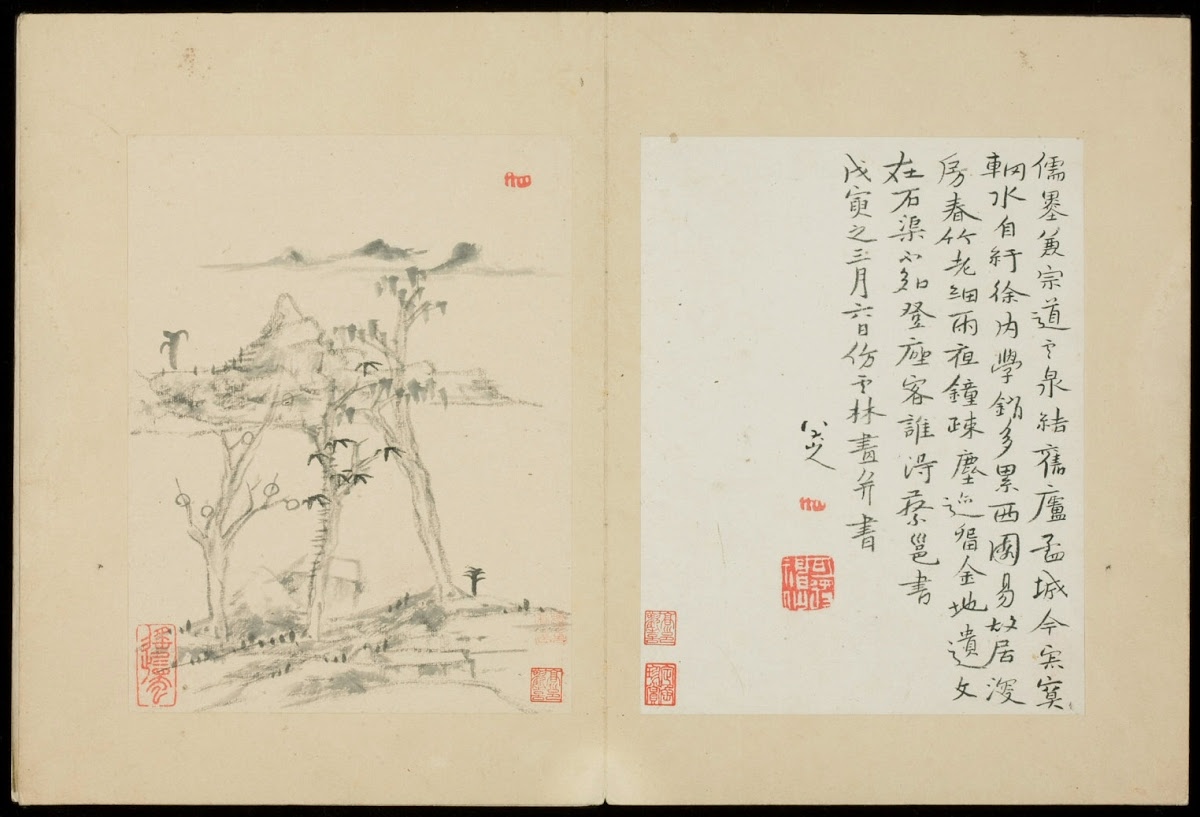 儒墨兼宗道雲泉結舊廬孟城今寂寞
輞水自紆徐內學銷多累西園易故居深
房春竹老細雨夜鐘疎塵迹留金地遺文
在石渠不知登座客誰得蔡邕書
戊寅之三月六日仿雲林畫并書
八大山人